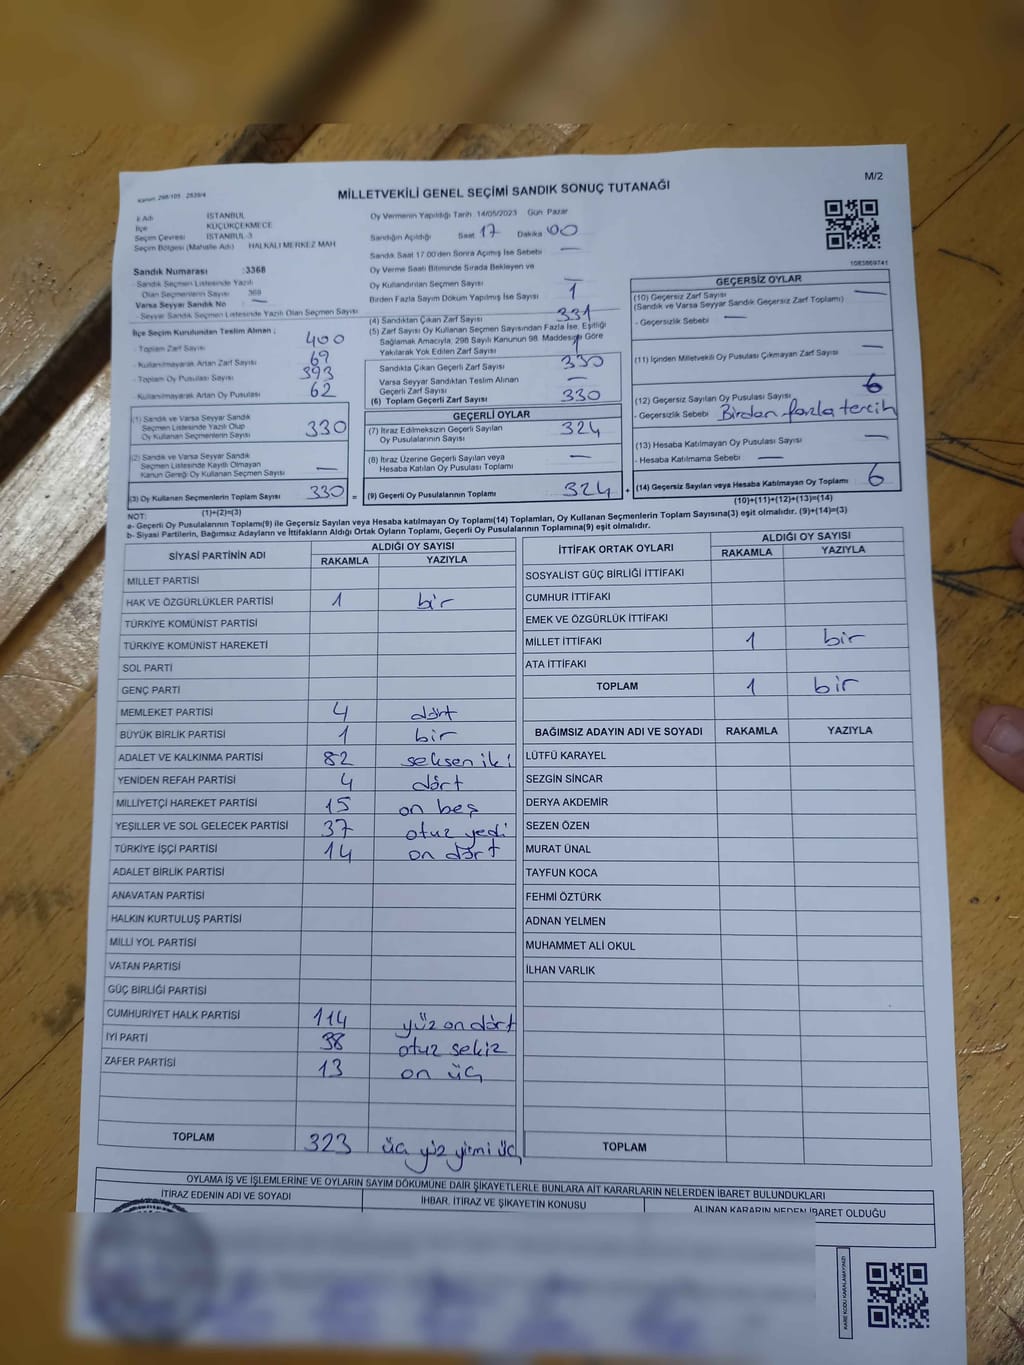 Kanun: 298/105 2839/4
MİLLETVEKİLİ GENEL SEÇİMİ SANDIK SONUÇ TUTANAĞI
M/2
İl Adı İSTANBUL
İlçe KÜÇÜKÇEKMECE
Seçim Çevresi İSTANBUL-3
Seçim Bölgesi (Mahalle Adı) HALKALI MERKEZ MAH
Sandık Numarası :3368
- Sandık Seçmen Listesinde Yazılı
Olan Seçmenlerin Sayısı 369
Varsa Seyyar Sandık No —
- Seyyar Sandık Seçmen Listesinde Yazılı Olan Seçmen Sayısı
İlçe Seçim Kurulundan Teslim Alınan ;
- Toplam Zarf Sayısı 400
- Kullanılmayarak Artan Zarf Sayısı 69
- Toplam Oy Pusulası Sayısı 393
- Kullanılmayarak Artan Oy Pusulası 62
(1) Sandık ve Varsa Seyyar Sandık
Seçmen Listesinde Yazılı Olup
Oy Kullanan Seçmenlerin Sayısı 330
(2) Sandık ve Varsa Seyyar Sandık
Seçmen Listesinde Kayıtlı Olmayan
Kanun Gereği Oy Kullanan Seçmen Sayısı —
(3) Oy Kullanan Seçmenlerin Toplam Sayısı 330 =
(1)+(2)=(3)
Oy Vermenin Yapıldığı Tarih :14/05/2023 Gün Pazar
Sandığın Açıldığı Saat 17 Dakika 00
Sandık Saat 17:00'den Sonra Açılmış İse Sebebi —
Oy Verme Saati Bitiminde Sırada Bekleyen ve
Oy Kullandırılan Seçmen Sayısı
Birden Fazla Sayım Döküm Yapılmış İse Sayısı 1
(4) Sandıktan Çıkan Zarf Sayısı 331
(5) Zarf Sayısı Oy Kullanan Seçmen Sayısından Fazla İse, Eşitliği
Sağlamak Amacıyla, 298 Sayılı Kanunun 98. Maddesine Göre
Yakılarak Yok Edilen Zarf Sayısı 1
Sandıkta Çıkan Geçerli Zarf Sayısı 330
Varsa Seyyar Sandıktan Teslim Alınan
Geçerli Zarf Sayısı —
(6) Toplam Geçerli Zarf Sayısı 330
GEÇERLİ OYLAR
(7) İtiraz Edilmeksizin Geçerli Sayılan
Oy Pusulalarının Sayısı 324
(8) İtiraz Üzerine Geçerli Sayılan veya
Hesaba Katılan Oy Pusulası Toplamı —
(9) Geçerli Oy Pusulalarının Toplamı 324 +
1083869741
GEÇERSİZ OYLAR
(10) Geçersiz Zarf Sayısı —
(Sandık ve Varsa Seyyar Sandık Geçersiz Zarf Toplamı)
- Geçersizlik Sebebi —
(11) İçinden Milletvekili Oy Pusulası Çıkmayan Zarf Sayısı —
(12) Geçersiz Sayılan Oy Pusulası Sayısı 6
- Geçersizlik Sebebi Birden fazla tercih
(13) Hesaba Katılmayan Oy Pusulası Sayısı —
- Hesaba Katılmama Sebebi —
(14) Geçersiz Sayılan veya Hesaba Katılmayan Oy Toplamı 6
(10)+(11)+(12)+(13)=(14)
NOT:
a- Geçerli Oy Pusulalarının Toplamı(9) ile Geçersiz Sayılan veya Hesaba katılmayan Oy Toplamı(14) Toplamları, Oy Kullanan Seçmenlerin Toplam Sayısına(3) eşit olmalıdır. (9)+(14)=(3)
b- Siyasi Partilerin, Bağımsız Adayların ve İttifakların Aldığı Ortak Oyların Toplamı, Geçerli Oy Pusulalarının Toplamına(9) eşit olmalıdır.
SİYASİ PARTİNİN ADI ALDIĞI OY SAYISI
RAKAMLA YAZIYLA
MİLLET PARTİSİ
HAK VE ÖZGÜRLÜKLER PARTİSİ 1 bir
TÜRKİYE KOMÜNİST PARTİSİ
TÜRKİYE KOMÜNİST HAREKETİ
SOL PARTİ
GENÇ PARTİ
MEMLEKET PARTİSİ 4 dört
BÜYÜK BİRLİK PARTİSİ 1 bir
ADALET VE KALKINMA PARTİSİ 82 seksen iki
YENİDEN REFAH PARTİSİ 4 dört
MİLLİYETÇİ HAREKET PARTİSİ 15 on beş
YEŞİLLER VE SOL GELECEK PARTİSİ 37 otuz yedi
TÜRKİYE İŞÇİ PARTİSİ 14 on dört
ADALET BİRLİK PARTİSİ
ANAVATAN PARTİSİ
HALKIN KURTULUŞ PARTİSİ
MİLLİ YOL PARTİSİ
VATAN PARTİSİ
GÜÇ BİRLİĞİ PARTİSİ
CUMHURİYET HALK PARTİSİ 114 yüz on dört
İYİ PARTİ 38 otuz sekiz
ZAFER PARTİSİ 13 on üç
TOPLAM 323 üç yüz yirmi üç
İTTİFAK ORTAK OYLARI ALDIĞI OY SAYISI
RAKAMLA YAZIYLA
SOSYALİST GÜÇ BİRLİĞİ İTTİFAKI
CUMHUR İTTİFAKI
EMEK VE ÖZGÜRLÜK İTTİFAKI
MİLLET İTTİFAKI 1 bir
ATA İTTİFAKI
TOPLAM 1 bir
BAĞIMSIZ ADAYIN ADI VE SOYADI RAKAMLA YAZIYLA
LÜTFÜ KARAYEL
SEZGİN SİNCAR
DERYA AKDEMİR
SEZEN ÖZEN
MURAT ÜNAL
TAYFUN KOCA
FEHMİ ÖZTÜRK
ADNAN YELMEN
MUHAMMET ALİ OKUL
İLHAN VARLIK
TOPLAM
OYLAMA İŞ VE İŞLEMLERİNE VE OYLARIN SAYIM DÖKÜMÜNE DAİR ŞİKAYETLERLE BUNLARA AİT KARARLARIN NELERDEN İBARET BULUNDUKLARI
İTİRAZ EDENİN ADI VE SOYADI İHBAR, İTİRAZ VE ŞİKAYETİN KONUSU ALINAN KARARIN NEDEN İBARET OLDUĞU
KARE KODU KARALAMAYINIZ!